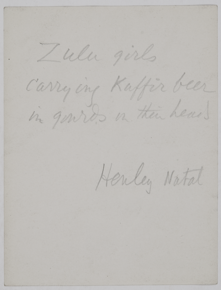 Zulu girls
carrying Kaffir beer
in gourds on their heads
Henley Natal